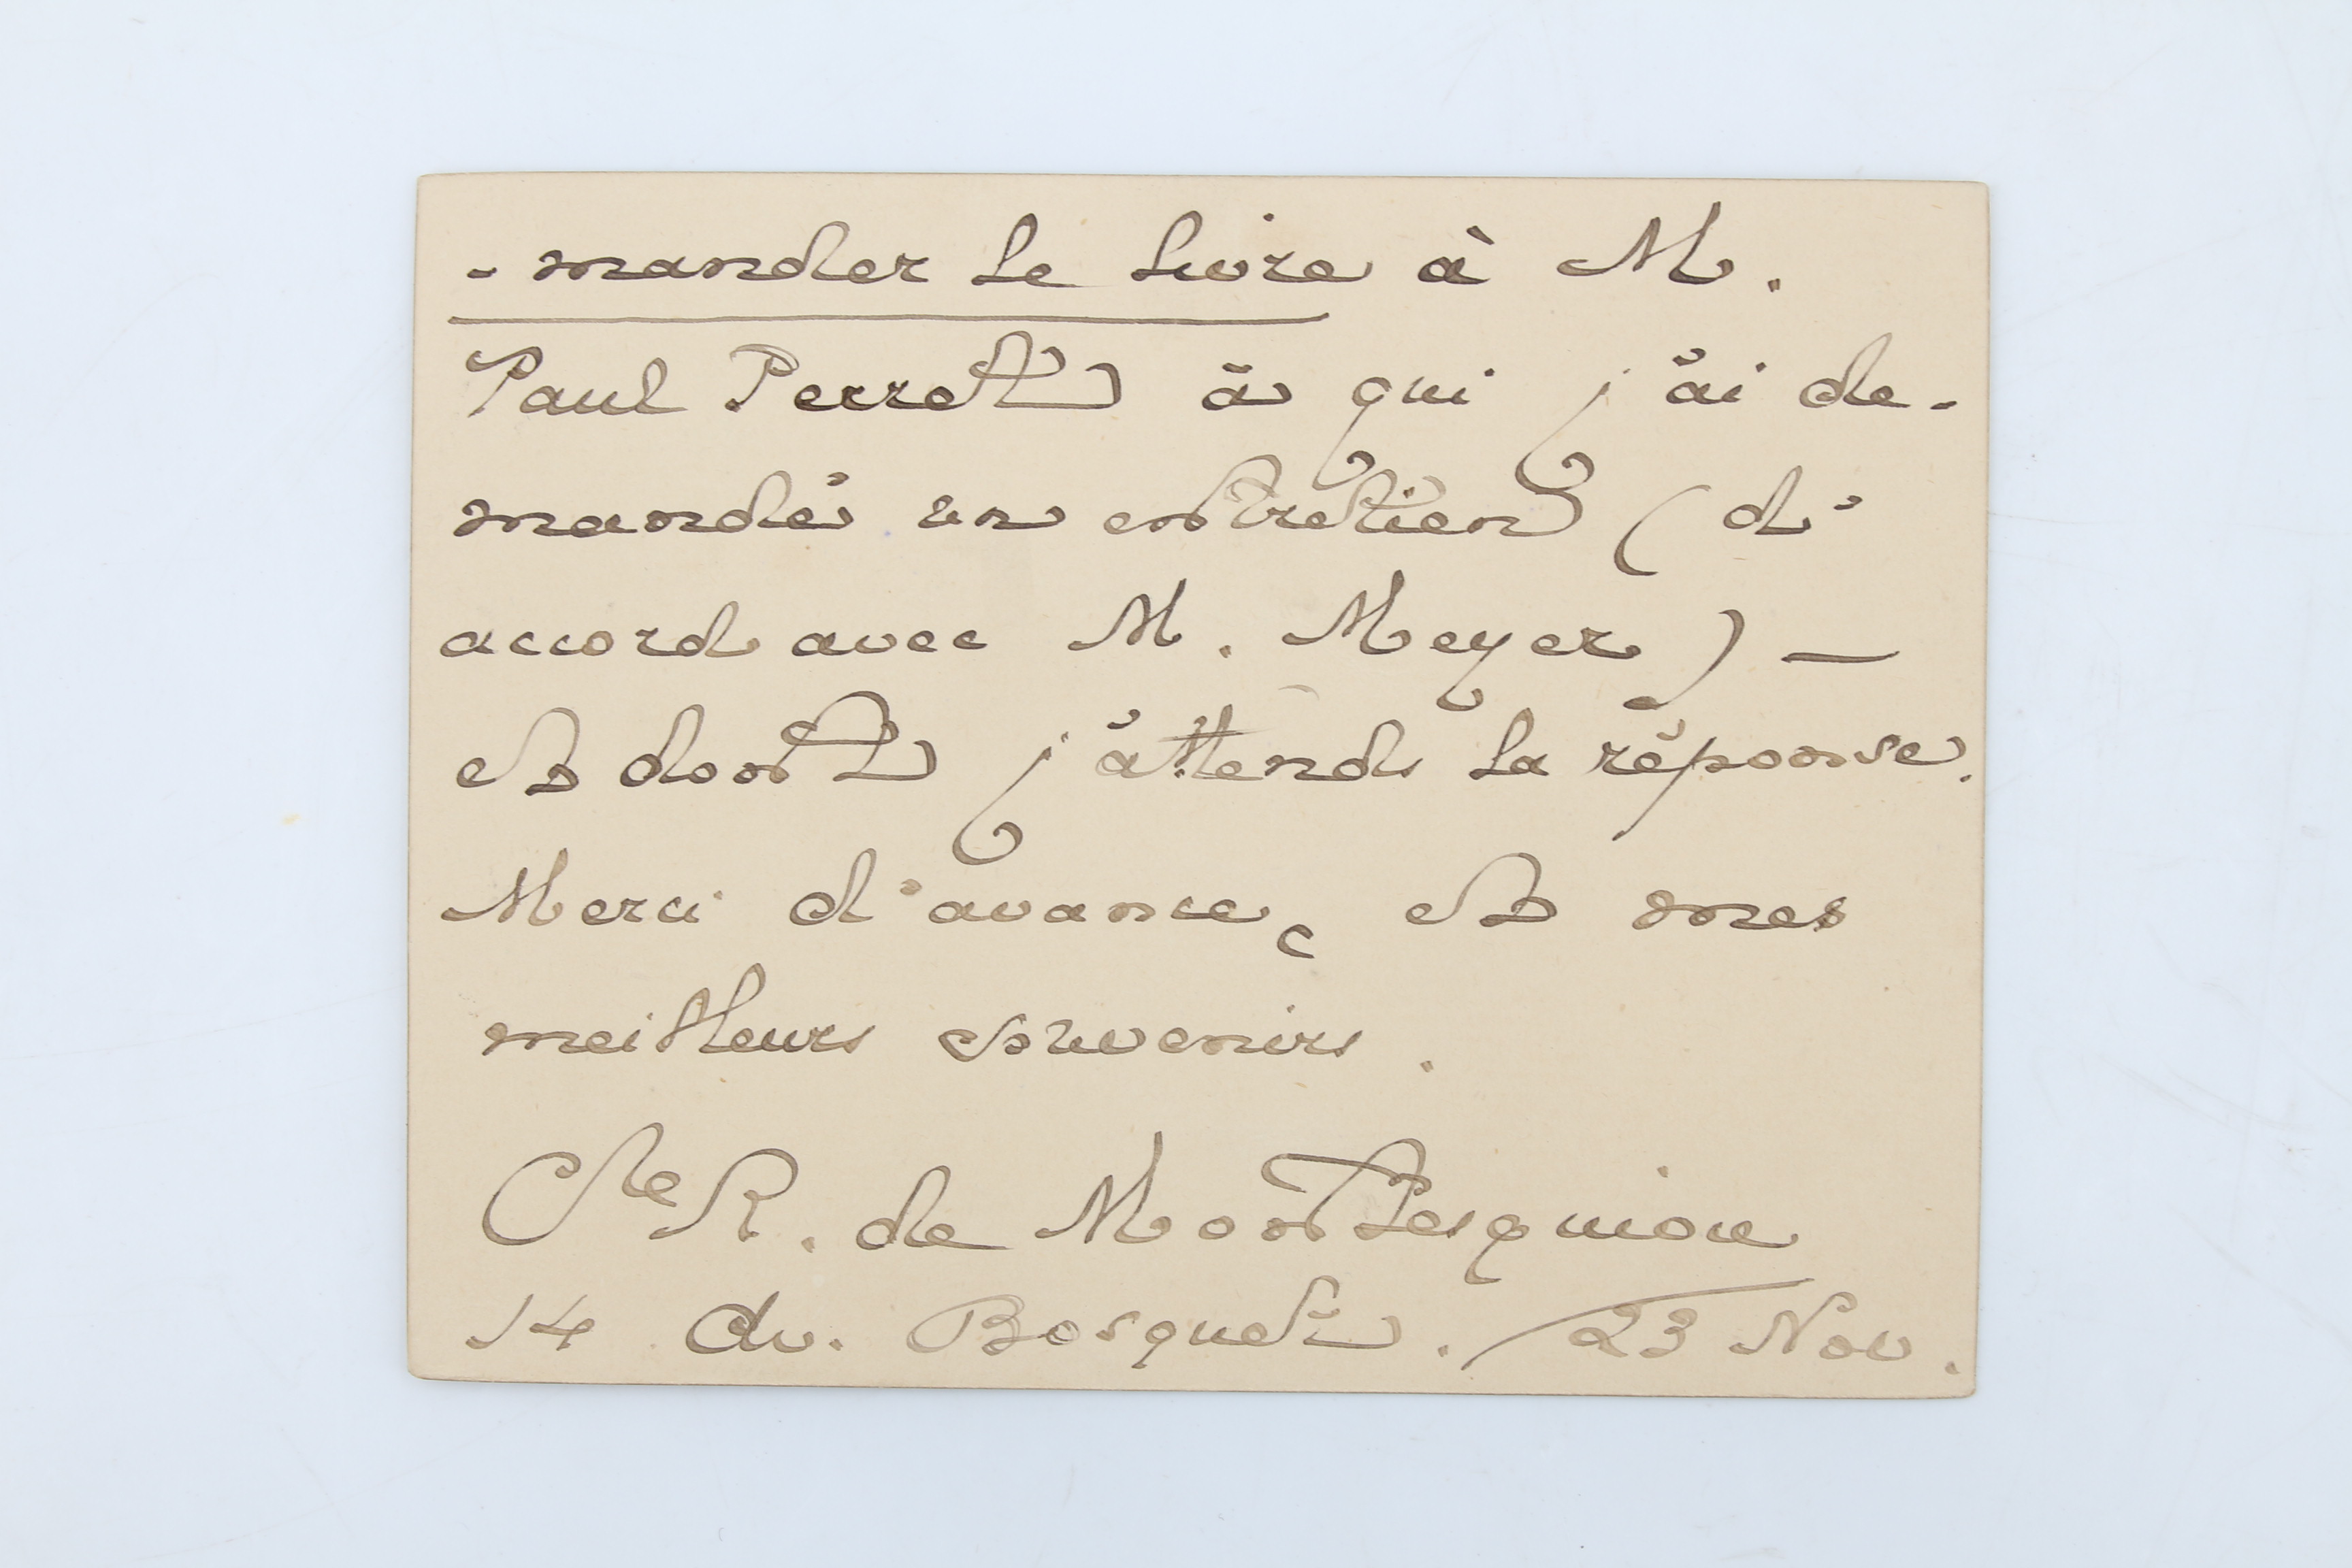 - mander le livre à M.
Paul Perret à qui j'ai de-
mandé un entretien (d'
accord avec M. Meyer) —
et dont j'attends la réponse.
Merci d'avance, et mes
meilleurs souvenirs.
Cte R. de Montesquiou
14 Av. Bosquet. / 23 Nov.